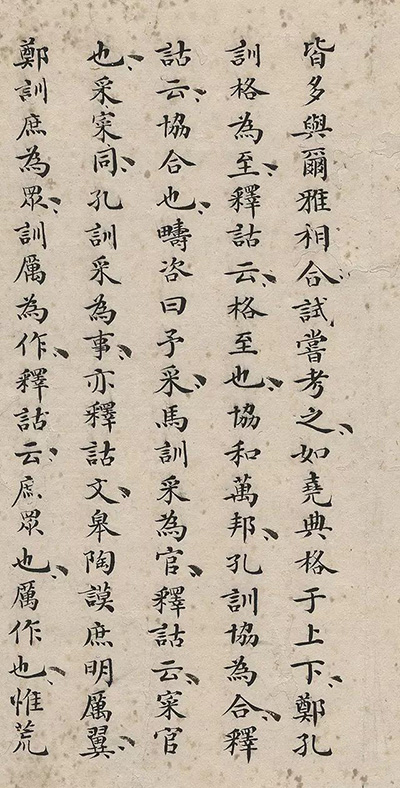 皆多與爾雅相合試嘗考之如堯典格于上下鄭孔
訓格為至釋詁云格至也協和萬邦孔訓協為合釋
詁云協合也疇咨曰予采馬訓采為官釋詁云寀官
也采寀同孔訓采為事亦釋詁文皋陶謨庶明厲翼
鄭訓庶為眾訓厲為作釋詁云庶眾也厲作也惟荒